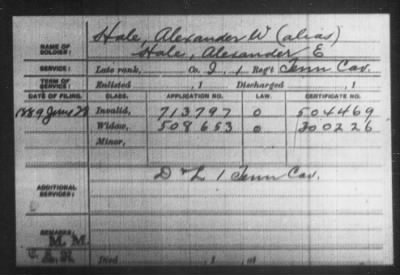 Hale, Alexander W (alias)
NAME OF SOLDIER: Hale, Alexander E
SERVICE: Late rank, Co. I, 1 Reg't Tenn Cav.
TERM OF SERVICE: Enlisted , 1 Discharged , 1
DATE OF FILING. CLASS. APPLICATION NO. LAW. CERTIFICATE NO.
1889 Invalid, 713797 0 504469
Widow, 508653 0 300226
Minor,
ADDITIONAL SERVICES: D & L 1 Tenn Cav.
REMARKS:
M. M.
Died , 1 , at